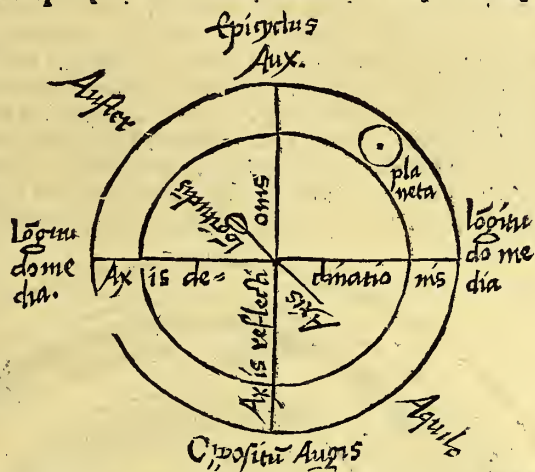 Epicyclus
Aux.
Auster
planeta
lõgitu
do me
dia.
lõgitu
do me
dia
Axis de=clinatio nis
Axis reflexi onis
Axis
Aquilo
Opositũ Augis